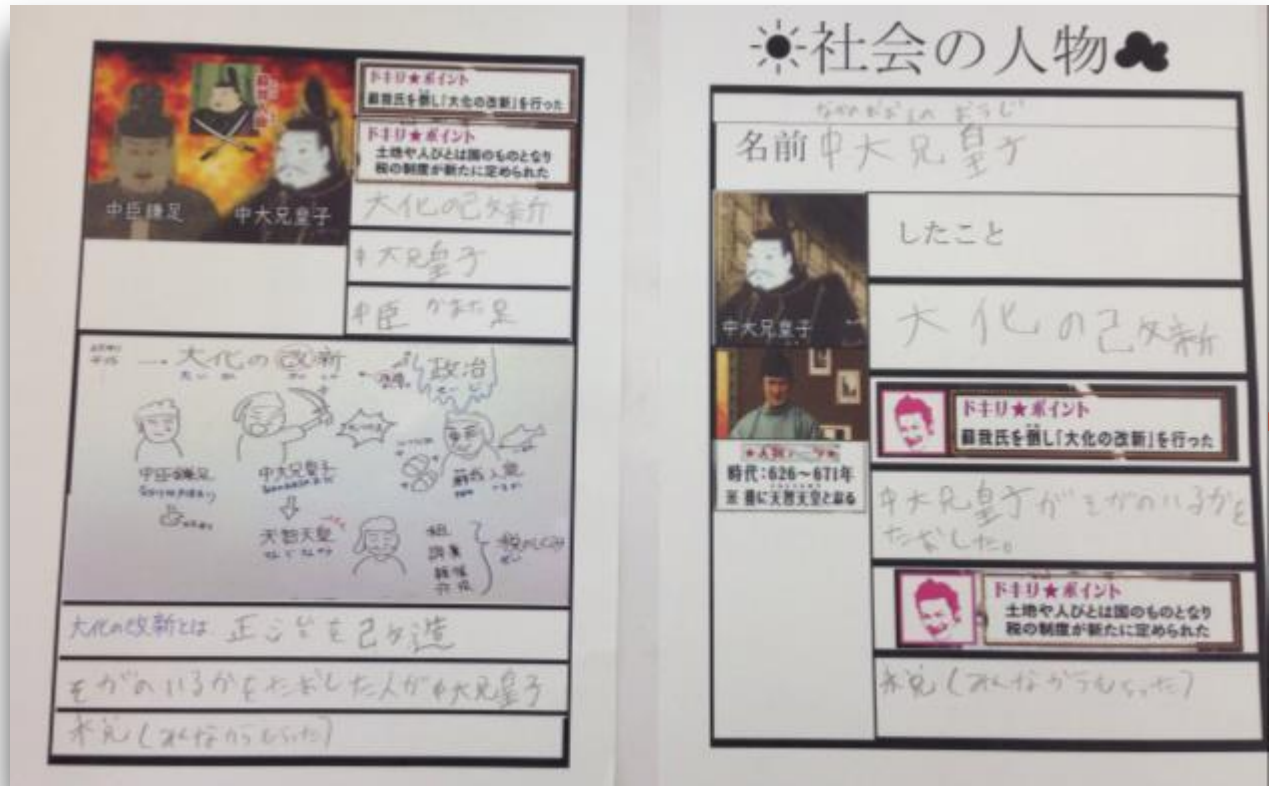 ドキリ★ポイント
蘇我氏を倒し「大化の改新」を行った
ドキリ★ポイント
土地や人びとは国のものとなり
税の制度が新たに定められた
中臣鎌足
中大兄皇子
大化の改新
中大兄皇子
中臣かまた足
→大化の改新
政治
中臣鎌足
中大兄皇子
蘇我入鹿
天智天皇
租
調
税のしくみ
大化の改新とは 正治を改造
そがのいるかをたおした人が中大兄皇子
税(みんなからもらった)
社会の人物
なかのおおえの おうじ
名前 中大兄皇子
中大兄皇子
したこと
大化の改新
ドキリ★ポイント
蘇我氏を倒し「大化の改新」を行った
時代：626～671年
※後に天智天皇となる
中大兄皇子がそがのいるかを
たおした。
ドキリ★ポイント
土地や人びとは国のものとなり
税の制度が新たに定められた
税(みんなからもらった)